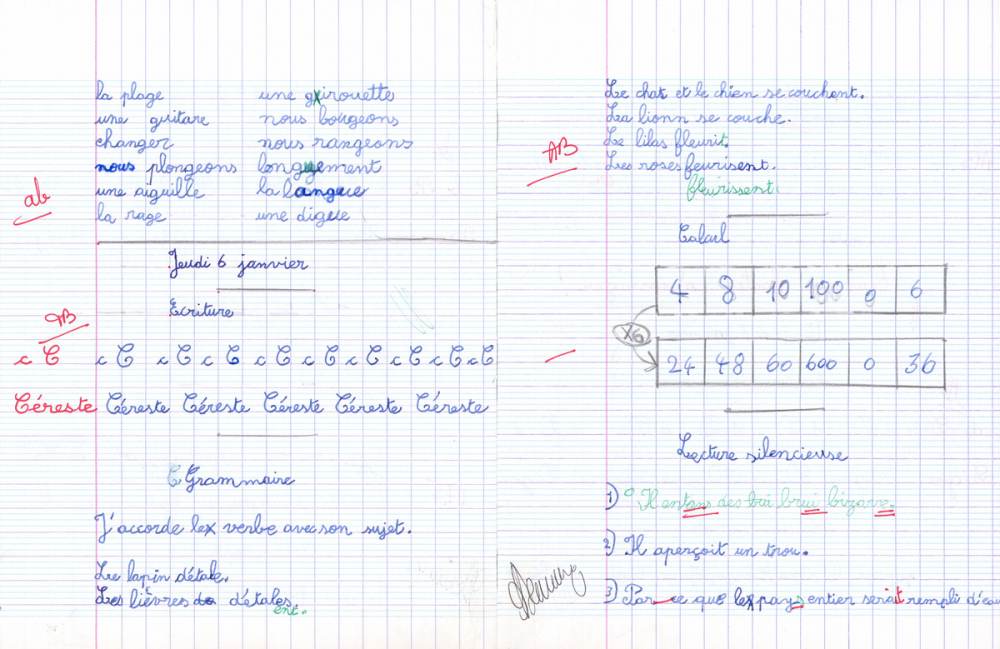 la plage une girouette
une guitare nous bougeons
changer nous rangeons
nous plongeons longuement
une aiguille la langue
la rage une digue
ab
Jeudi 6 janvier
Ecriture
TB
c C c C c C c C c C c C c C c C c C c C
Céreste Céreste Céreste Céreste Céreste Céreste
Grammaire
J'accorde le verbe avec son sujet.
Le lapin détale.
Les lièvres détales
ent.
Le chat et le chien se couchent.
La lionn se couche.
Le lilas fleurit.
AB
Les roses feurisent.
fleurissent.
Calcul
4 8 10 100 0 6
X6
24 48 60 600 0 36
Lecture silencieuse
1) Il entens des brui bizarre.
2) Il aperçoit un trou.
3) Par ce que le pays entier serait rempli d'eau